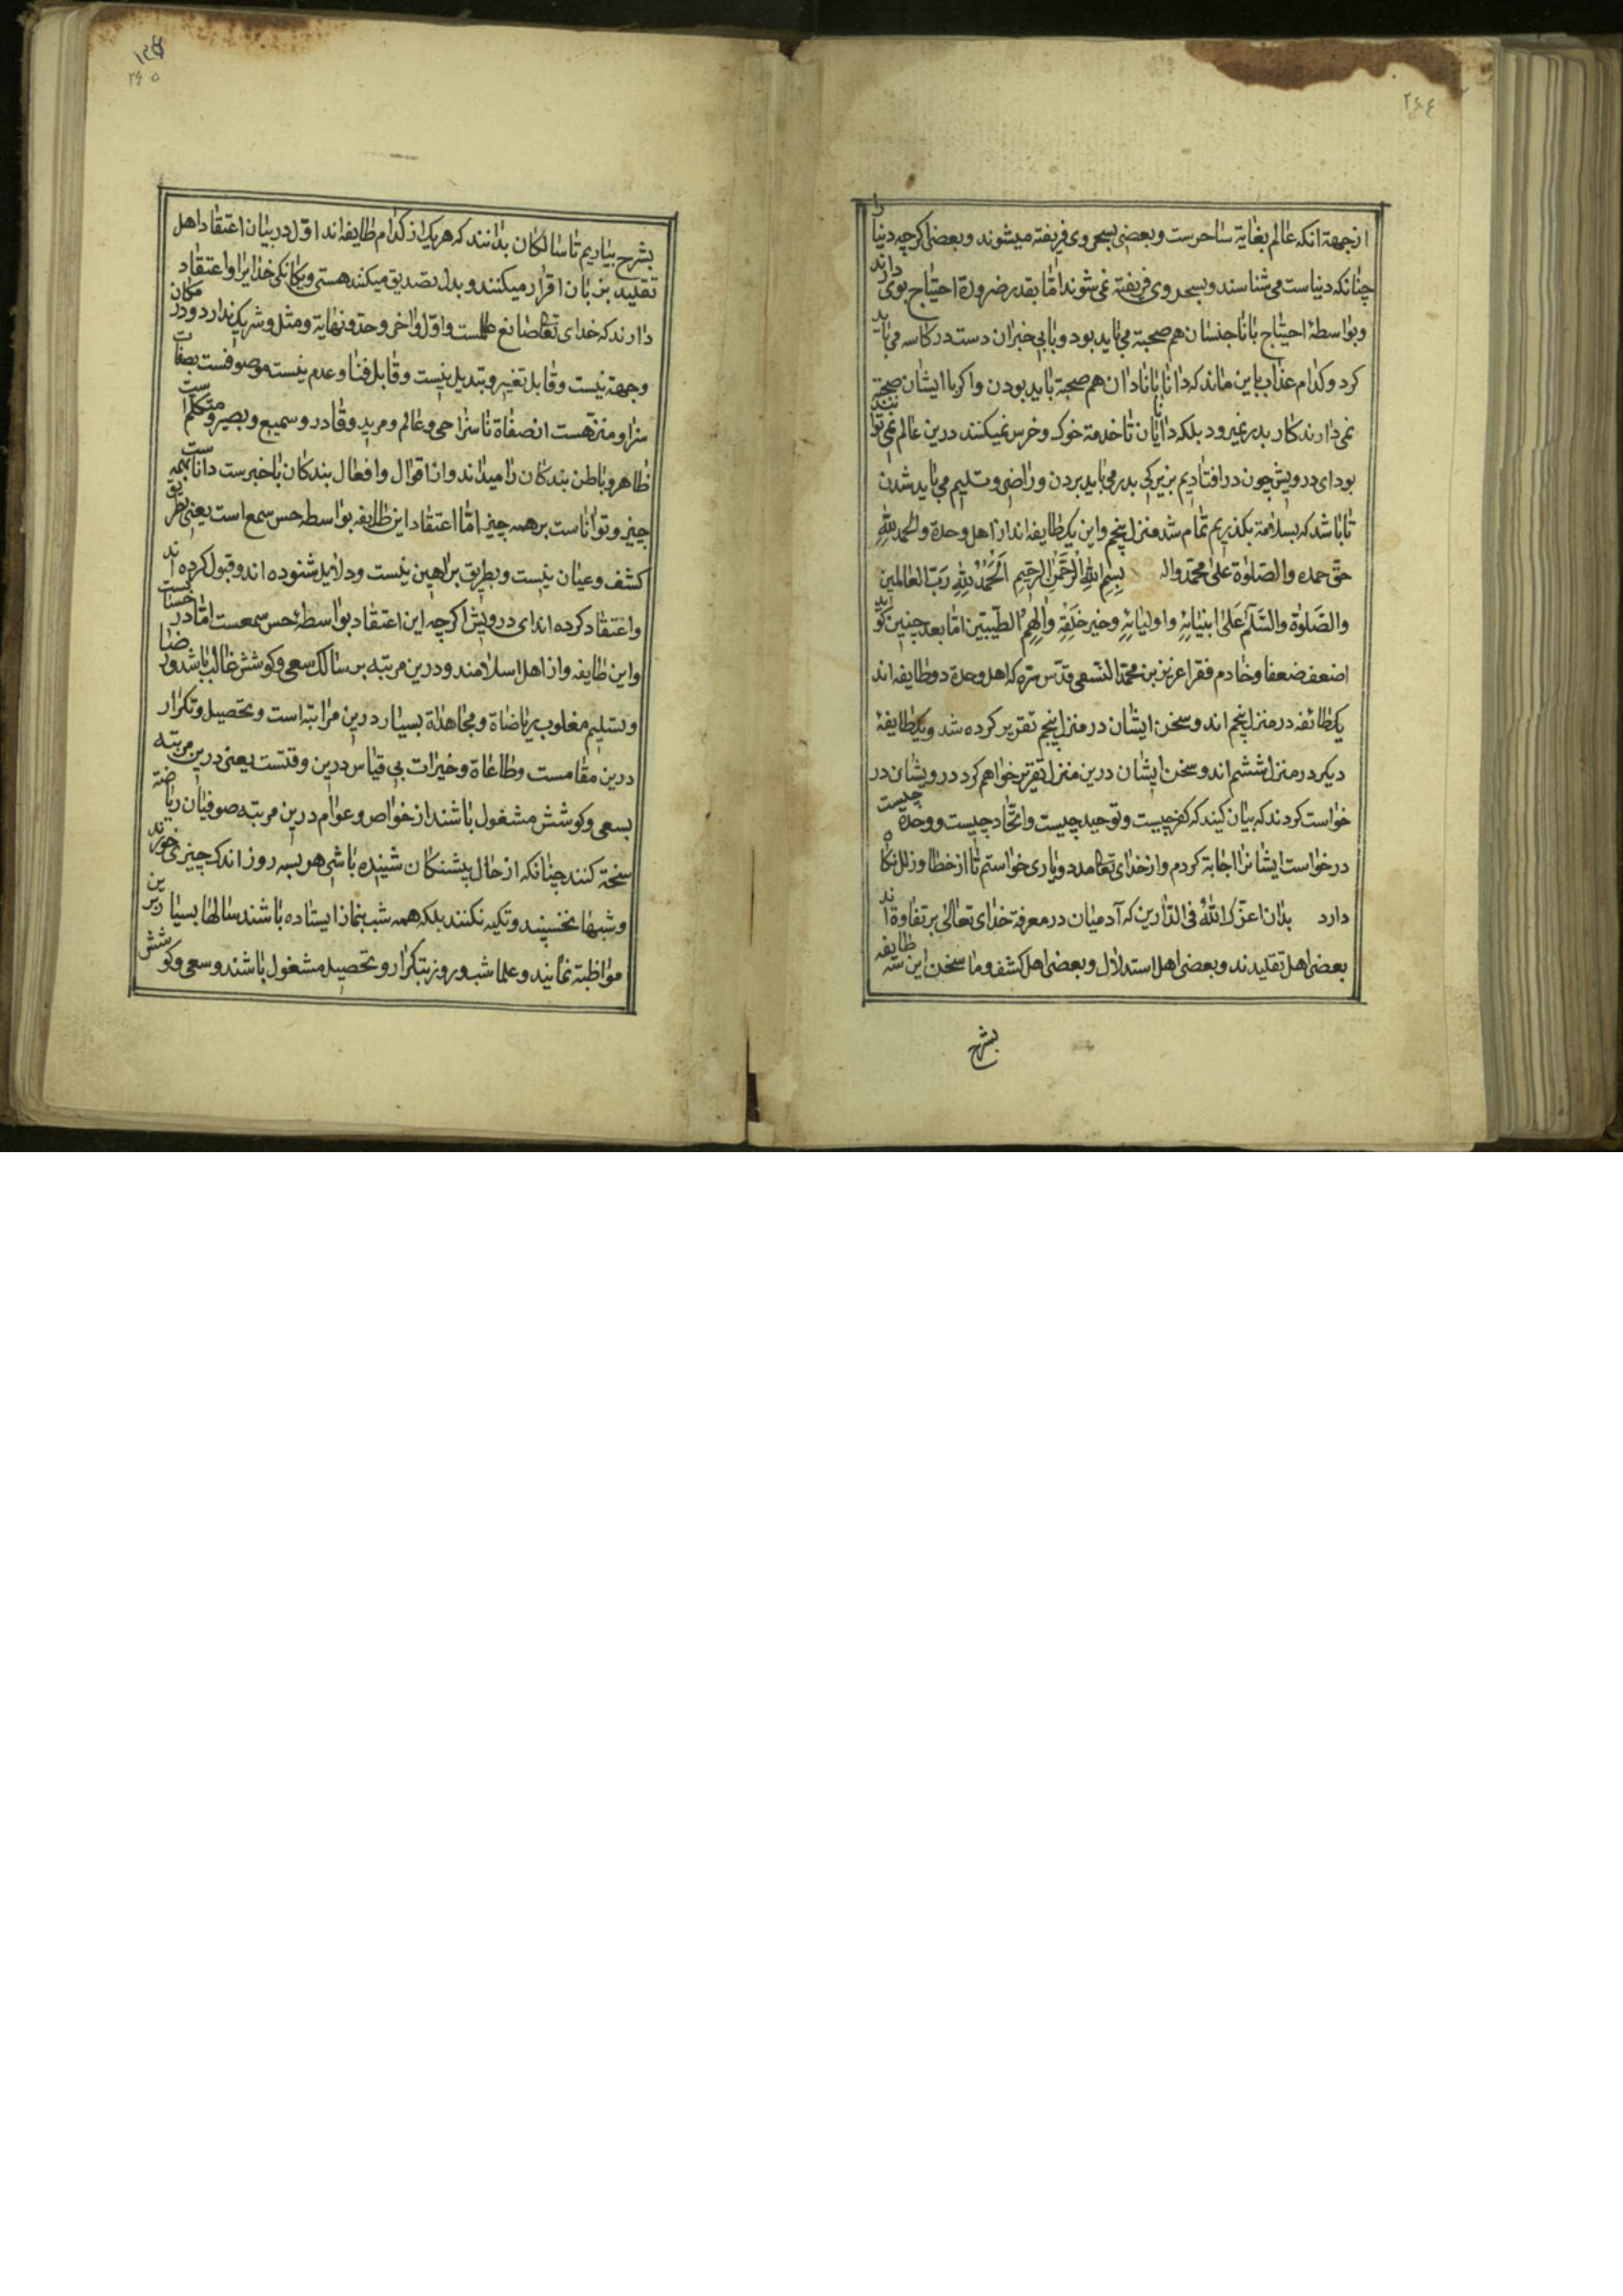 ٢٤٤
ازجهة انکه عالم بغایة ساحرست وبعضی بسحر وی فریفته میشوند وبعضی اکرچه دنیا را
چنانکه دنیاست می شناسند وبسحر وی فریفته نمی شوند امّا بقدر ضرورة احتیاج بوی دارند
وبواسطهٔ احتیاج باناجنسان هم صحبة می باید بود وبابی خبران دست در کاسه می باید
کرد وکدام عذاب باین ماند که دانا بانادان هم صحبة باید بودن واکر باایشان صحبة
نمی دارند کار بدر نمیرود بلکه دانایان تا خدمة خوک وخرس نمیکنند درین عالم نمی توانند
بود ای درویش چون در افتادیم بزیرکی بدر می باید بردن وراضی وتسلیم می باید شدن
تا باشد که بسلامة بکذریم تمام شد منزل پنجم واین یک طایفه اند از اهل وحدة والحمد لله
حق حمده والصّلوة علی محمّد واله بِسْمِ اللهِ الرَّحْمٰنِ الرَّحِيمِ اَلْحَمْدُ لِلّٰهِ رَبِّ العالمين
والصَّلوٰة والسَّلام عَلیٰ انبيائِهِ واوليائِهِ وخير خَلقِهِ والِهِم الطّيبين امّا بعد چنین کوید
اضعف ضعفا وخادم فقرا عزیز بن محمّد النّسفی قدّس سرّه که اهل وحدة دو طایفه اند
یک طائفه در منزل پنجم اند وسخن ایشان در منزل پنجم تقریر کرده شد ویک طایفهٔ
دیکر در منزل ششم اند وسخن ایشان درین منزل تقریر خواهم کرد درویشان در
خواست کردند که بیان کنید که کفر چیست وتوحید چیست واتّحاد چیست ووحدة چیست
درخواست ایشانرا اجابة کردم واز خدای تعا مدد ویاری خواستم تا از خطا وزلل نکاه
دارد بدان اعزّک اللهُ فی الدّارین که آدمیان در معرفة خدای تعالیٰ بر تفاوة اند
بعضی اهل تقلیدند وبعضی اهل استدلال وبعضی اهل کشف وما سخن این سه طایفه
بشرح
٢٤٥
بشرح بیاریم تا سالکان بدانند که هر یک از کدام طایفه اند اوّل در بیان اعتقاد اهل
تقلید بزبان اقرار میکنند وبدل تصدیق میکنند هستی ویکانکی خدایرا واعتقاد
دارند که خدای تعا صانع عالمست واوّل واخر وحدّ ونهایة ومثل وشریک ندارد ودر مکان
وجهة نیست وقابل تغییر وتبدیل نیست وقابل فنا وعدم نیست موصوفست بصفات
سزا ومنزّهست از صفاة ناسزا حی وعالم ومرید وقادر وسمیع وبصیر ومتکلّم است
ظاهر وباطن بندکان را میداند واز اقوال وافعال بندکان باخبرست داناست بهمه
چیز وتواناست بر همه چیز امّا اعتقاد این طایفه بواسطه حس سمع است یعنی بطریق
کشف وعیان نیست وبطریق براهین نیست ودلایل شنوده اند وقبول کرده اند
واعتقاد کرده اند ای درویش اکرچه این اعتقاد بواسطهٔ حس سمعست امّا در حسابست
واین طایفه واز اهل اسلامند ودرین مرتبه بر سالک سعی وکوشش غالب باشد ورضا
وتسلیم مغلوب ریاضاة ومجاهداة بسیار درین مراتبه است وتحصیل وتکرار
درین مقامست وطاعاة وخیرات بی قیاس درین وقتست یعنی درین مرتبه
بسعی وکوشش مشغول باشند از خواص وعوام درین مرتبه صوفیان ریاضة
سخة کنند چنانکه از حال پیشنکان شنیده باشی هر بسه روز اندک چیزی خورند
وشبها نخسپند وتکیه نکنند بلکه همه شب بنماز ایستاده باشند سالها بسیار برین
مواظبة نمایند وعلما شب وروز بتکرار وتحصیل مشغول باشند وسعی وکوشش